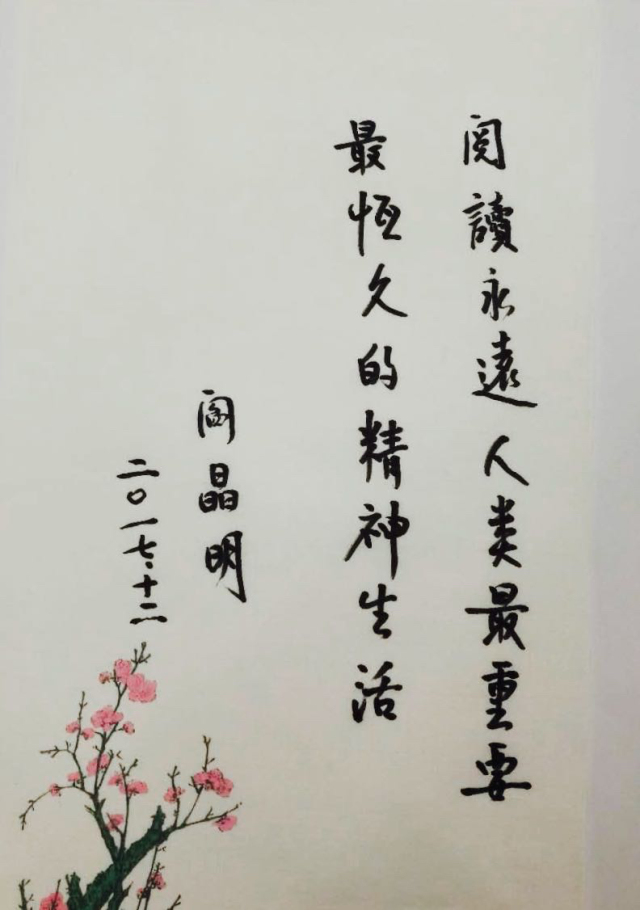 阅讀永遠人类最重要
最恆久的精神生活
阎晶明
二〇一七·十二